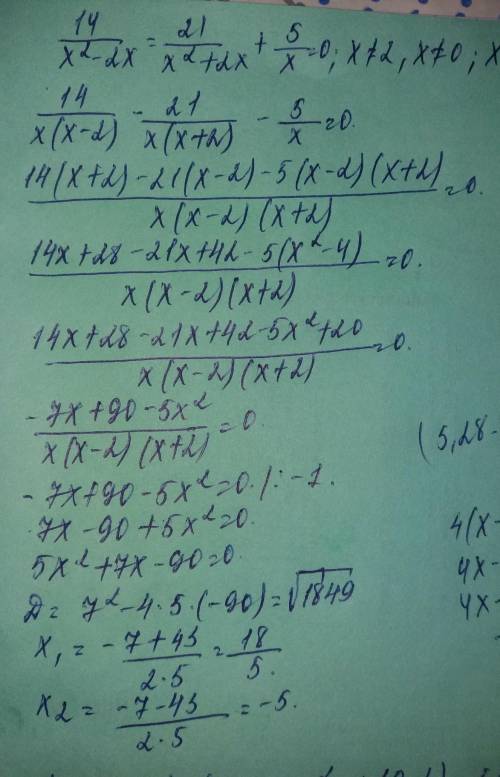 14/(x²-2x) = 21/(x²+2x) + 5/x =0; x≠2, x≠0; x
14/(x(x-2)) - 21/(x(x+2)) - 5/x =0.
(14(x+2)-21(x-2)-5(x-2)(x+2))/(x(x-2)(x+2)) =0.
(14x+28-21x+42-5(x²-4))/(x(x-2)(x+2)) =0.
(14x+28-21x+42-5x²+20)/(x(x-2)(x+2)) =0.
(-7x+90-5x²)/(x(x-2)(x+2)) =0.
(5,28-
-7x+90-5x²=0. /: -1.
7x-90+5x²=0.
4(x-
5x²+7x-90=0.
4x-
D= 7²-4·5·(-90)=√1849
4x-
x₁ = (-7+43)/(2·5) = 18/5.
x₂ = (-7-43)/(2·5) = -5.